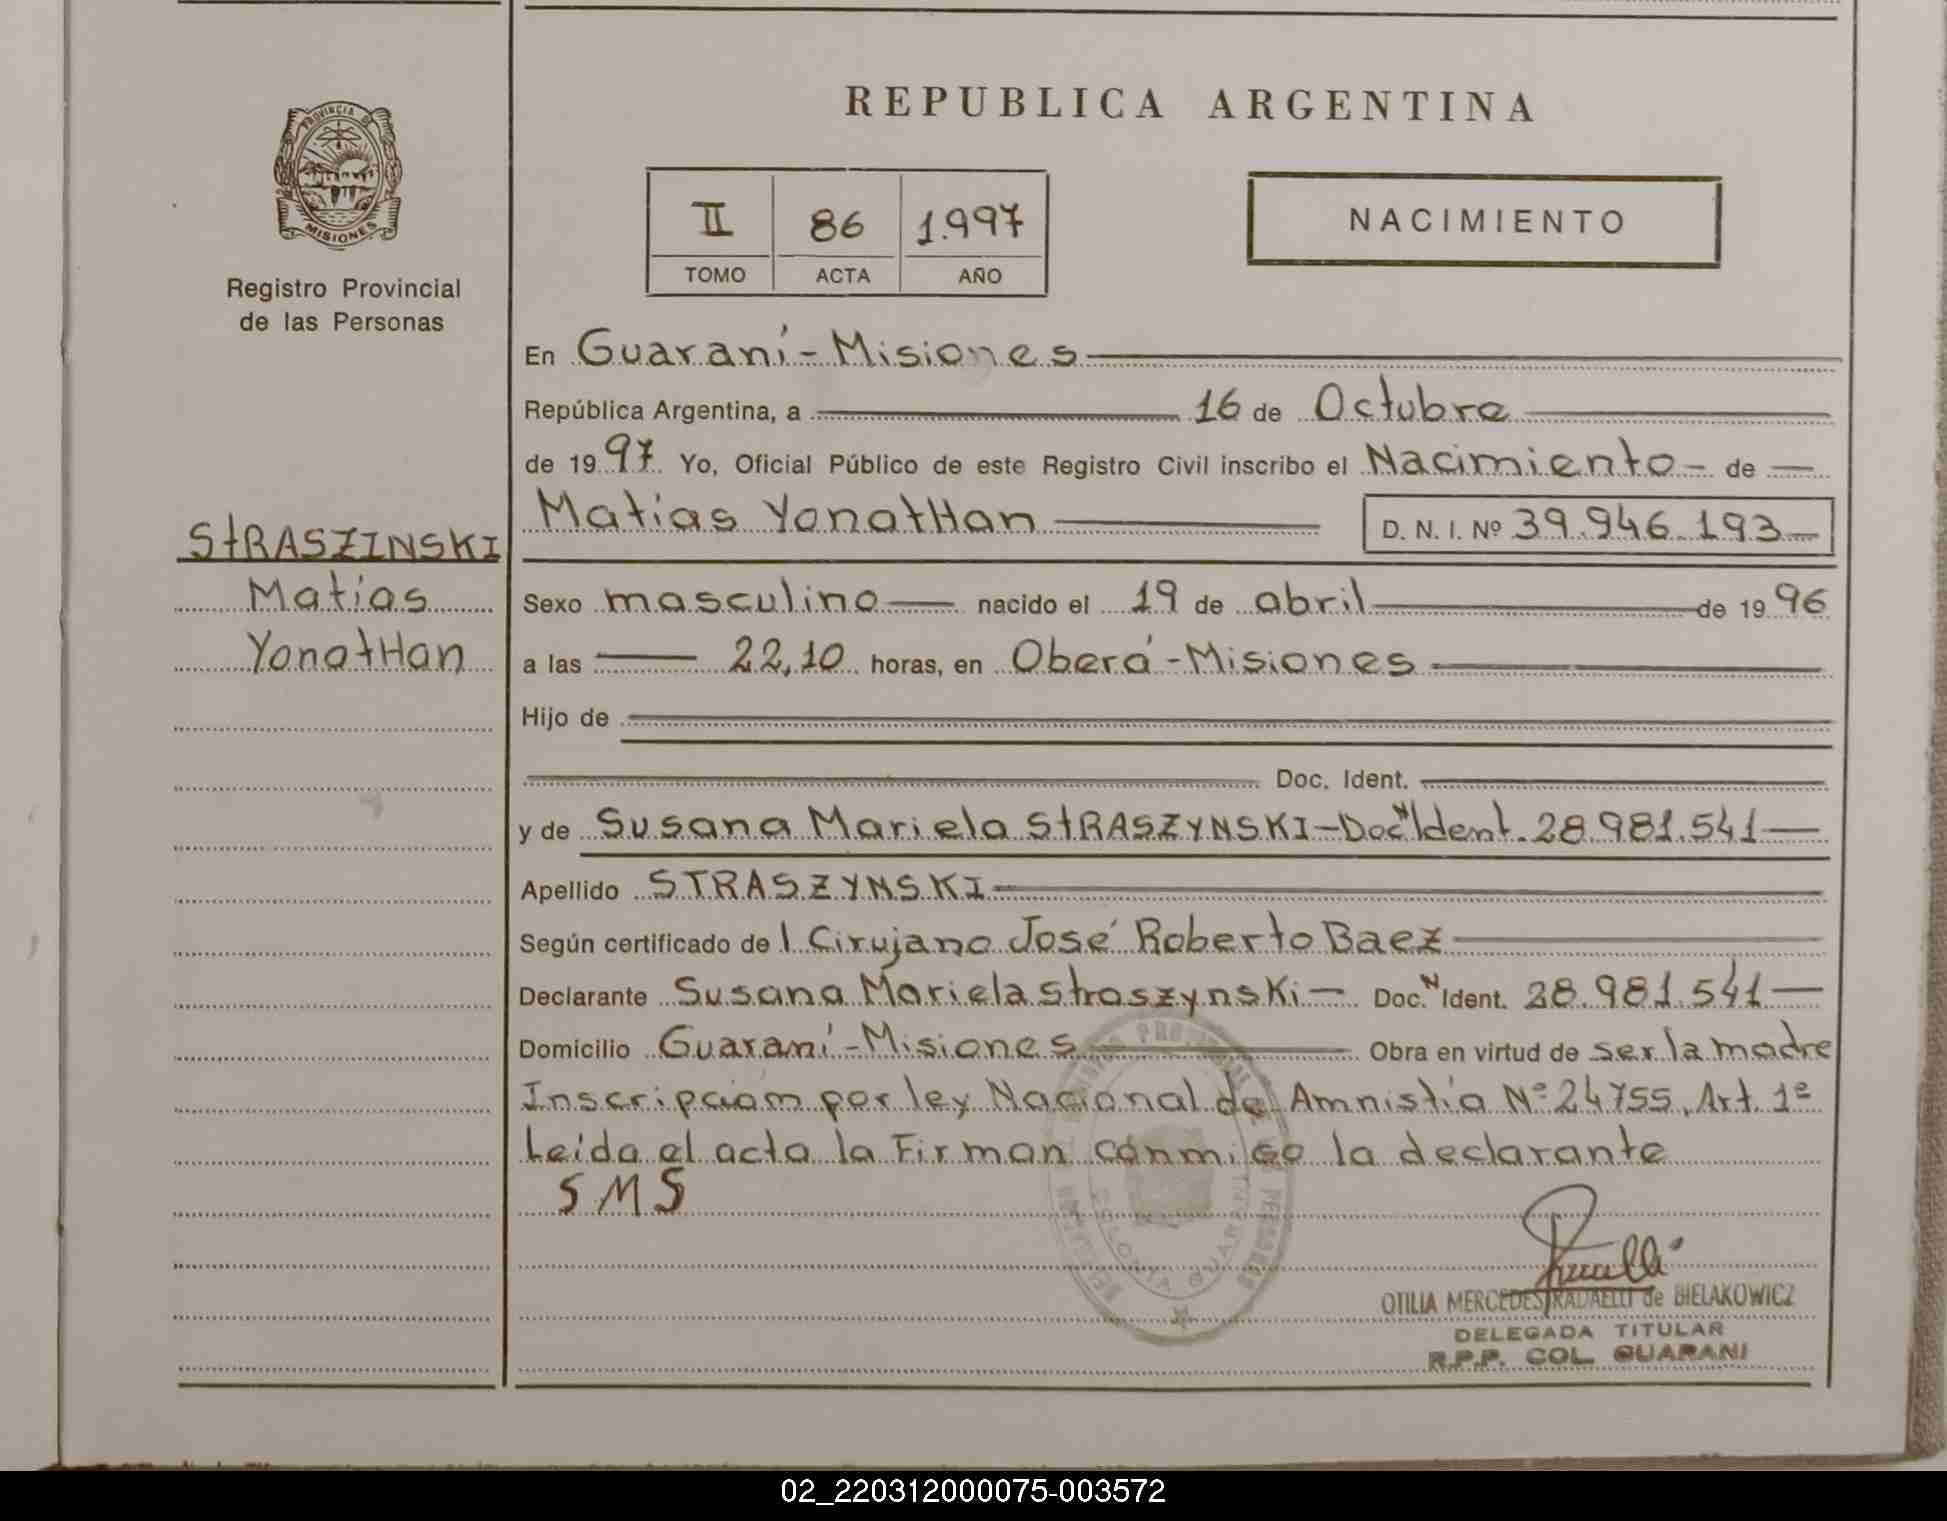 REPUBLICA ARGENTINA
PROVINCIA DE
MISIONES
Registro Provincial
de las Personas
II 86 1.997
TOMO ACTA AÑO
NACIMIENTO
En Guaraní - Misiones
República Argentina, a 16 de Octubre
de 1997 Yo, Oficial Público de este Registro Civil inscribo el Nacimiento - de
Matías YonatHan D. N. I. Nº 39.946.193
StRASZINSKI
Matías
YonatHan
Sexo masculino nacido el 19 de abril de 1996
a las 22,10 horas, en Oberá - Misiones
Hijo de
Doc. Ident.
y de Susana Mariela StRASZYNSKI - Doc N Ident. 28.981.541
Apellido STRASZYNSKI
Según certificado del Cirujano José Roberto Baez
Declarante Susana Mariela Straszynski - Doc. N Ident. 28.981.541
Domicilio Guaraní - Misiones Obra en virtud de ser la madre
Inscripción por ley Nacional de Amnistía Nº 24755, Art. 1º
Leída el acta la Firman conmigo la declarante
SMS
OTILIA MERCEDES RADAELLI de BIELAKOWICZ
DELEGADA TITULAR
R.P.P. COL. GUARANI
02_220312000075-003572